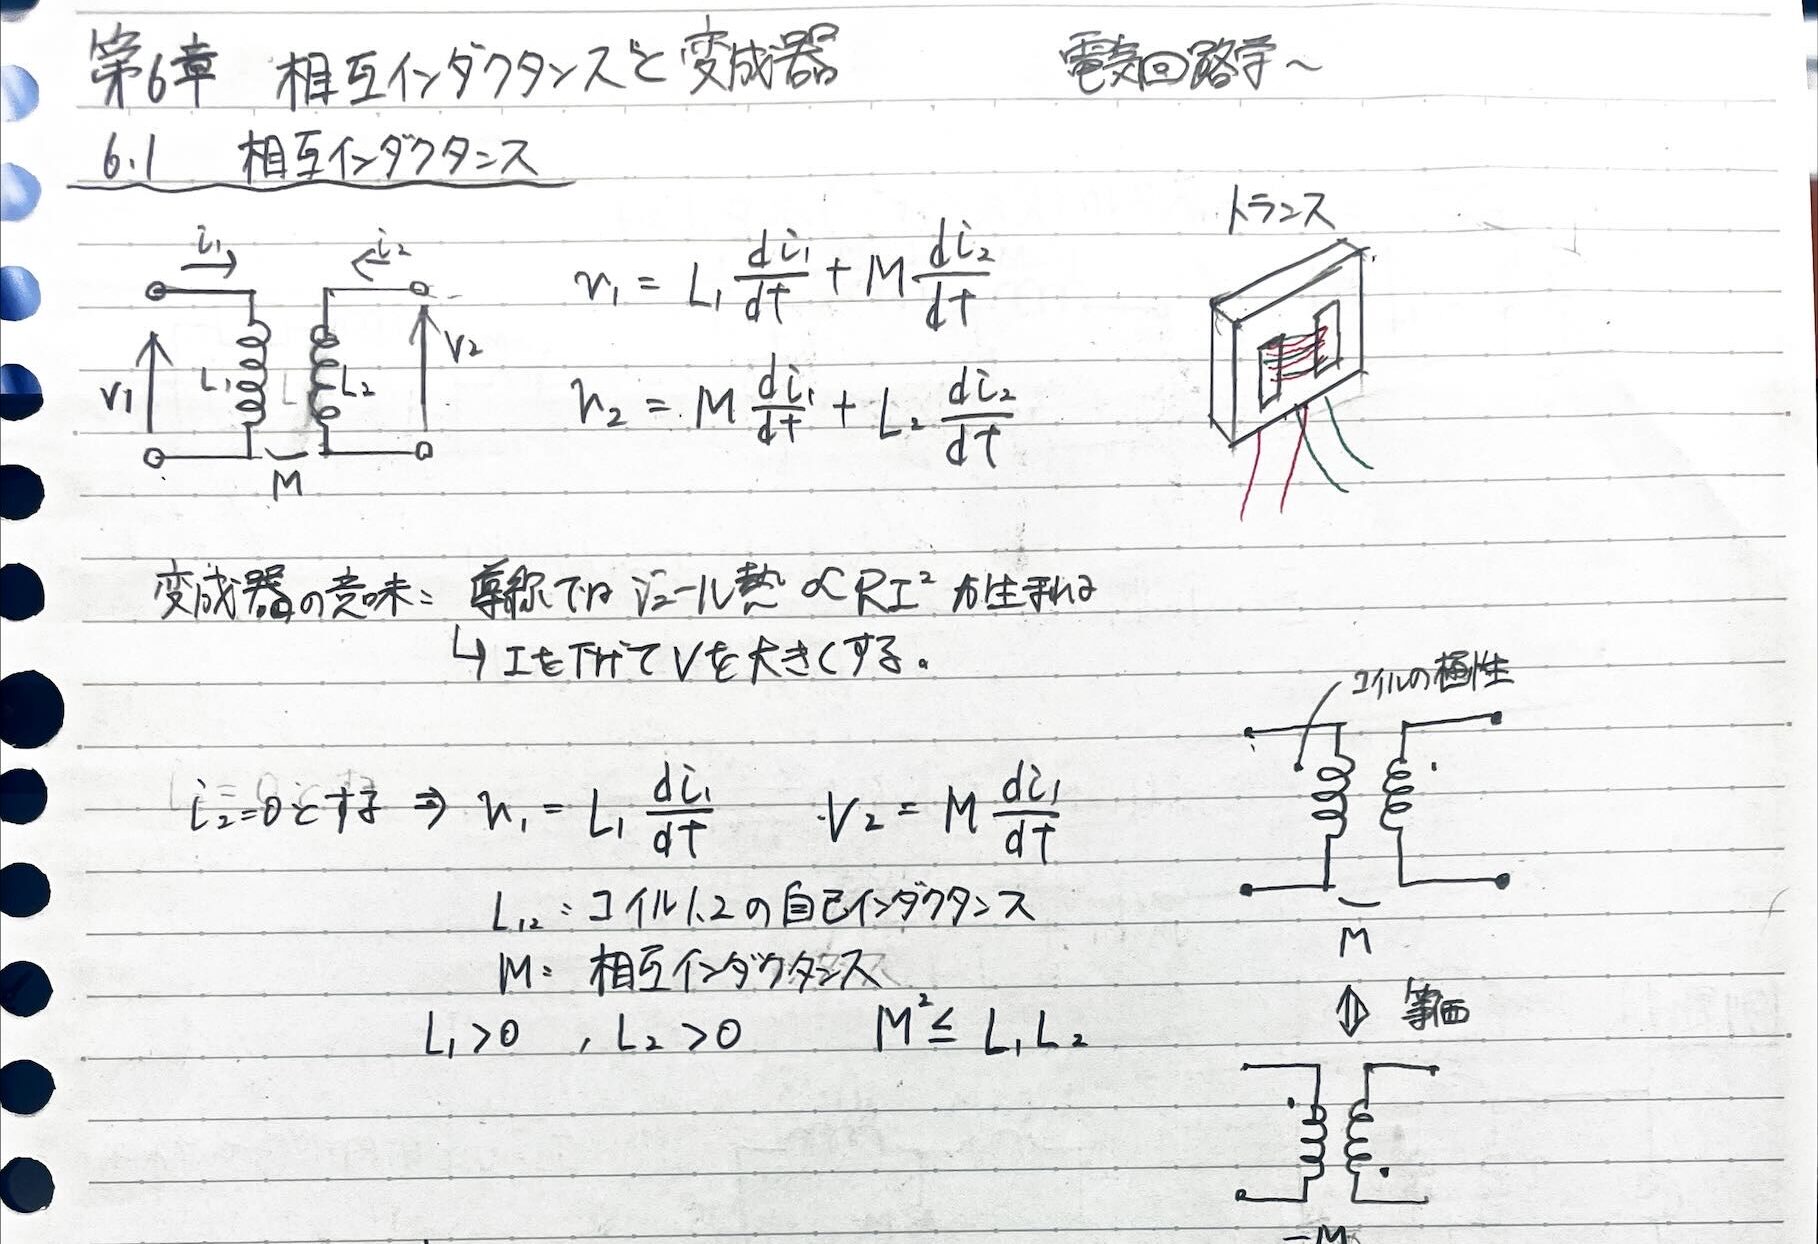 第6章 相互インダクタンスと変成器 電気回路学〜
6.1 相互インダクタンス
トランス
i₁ i₂
v₁ L₁ L₂ v₂
M
v₁ = L₁ di₁/dt + M di₂/dt
v₂ = M di₁/dt + L₂ di₂/dt
変成器の意味: 導線ではジュール熱 ∝ RI² が生まれる
↳ Iを下げてVを大きくする。
コイルの極性
i₂=0とする ⇒ v₁ = L₁ di₁/dt V₂ = M di₁/dt
L₁,₂: コイル1,2の自己インダクタンス
M: 相互インダクタンス
L₁>0 , L₂>0 M² ≤ L₁L₂
M
⇕ 等価
-M